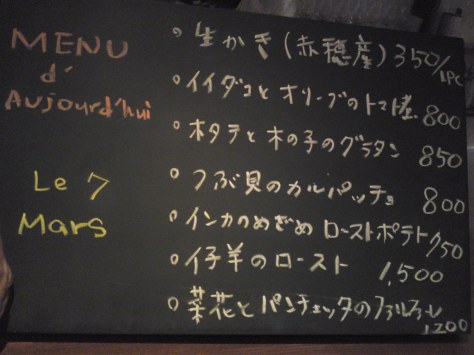 MENU
d'
Aujourd'hui
Le 7
Mars
。生かき(赤穂産) 350/1PC
。イイダコとオリーブのトマト煮 800
。ホタテと木の子のグラタン 850
。つぶ貝のカルパッチョ 800
。インカのめざめ ローストポテト 750
。仔羊のロースト 1,500
。菜花とパンチェッタのファルファーレ 1200